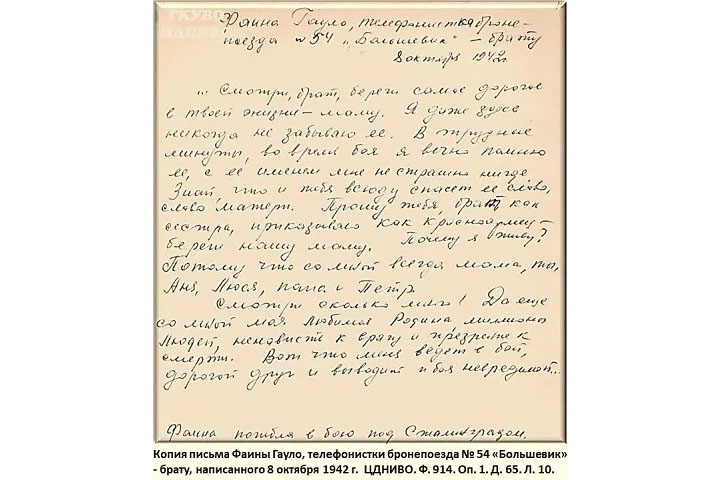 ГКУВО
ЦДНИВО
Фаина Гауло, телефонистка броне-
поезда № 54 „Большевик" – брату
8 октября 1942 г.
... Смотри, брат, береги самое дорогое
в твоей жизни – маму. Я даже здесь
никогда не забываю ее. В трудные
минуты, во время боя я вечно помню
ее, с ее именем мне не страшно нигде.
Знай, что и тебя всюду спасет ее слово,
слово матери. Прошу тебя, брат, как
сестра, приказываю как красноармеец –
береги нашу маму. Почему я живу?
Потому что со мной всегда мама, ты,
Аня, Люся, папа и Петр.
Смотри сколько много! Да еще
со мной моя любимая Родина, миллионы
людей, ненависть к врагу и презрение к
смерти. Вот что меня ведет в бой,
дорогой друг и выводит из боя невредимой...
Фаина погибла в бою под Сталинградом.
Копия письма Фаины Гауло, телефонистки бронепоезда № 54 «Большевик»
- брату, написанного 8 октября 1942 г. ЦДНИВО. Ф. 914. Оп. 1. Д. 65. Л. 10.